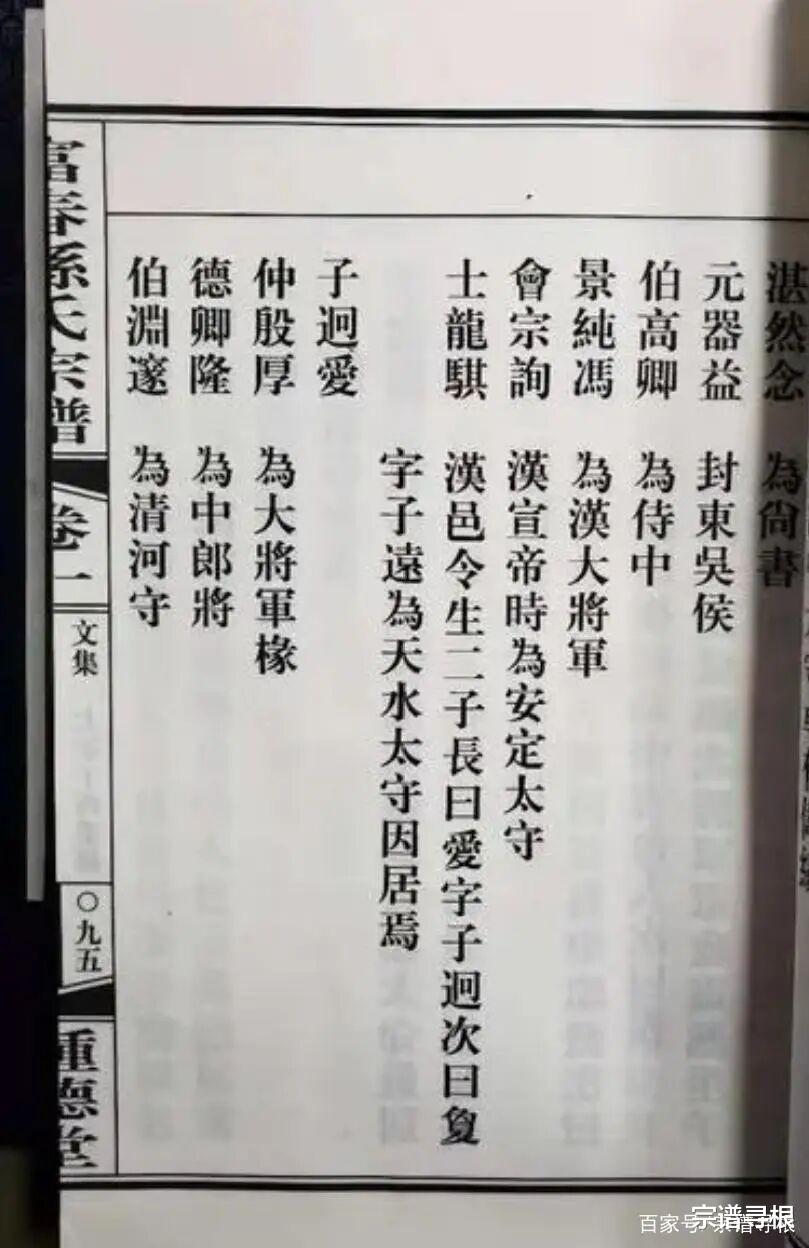 湛然念　為尙書
元器益　封東吳侯
伯高卿　為侍中
景純馮　為漢大將軍
會宗詢　漢宣帝時為安定太守
士龍騏　漢邑令生二子長曰愛字子迥次曰夐
字子遠為天水太守因居焉
子迥愛
仲殷厚　為大將軍椽
德卿隆　為中郎將
伯淵邃　為清河守
富春孫氏宗譜
卷一
文集
〇九五
種德堂
宗谱寻根
百家号